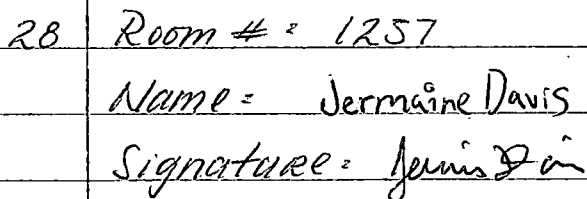 28 Room # : 1257
Name = Jermaine Davis
Signature :